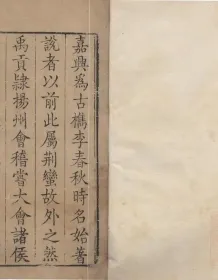 嘉興爲古檇李春秋時名始著
說者以前此屬荆蠻故外之然
禹貢隸揚州會稽嘗大會諸侯